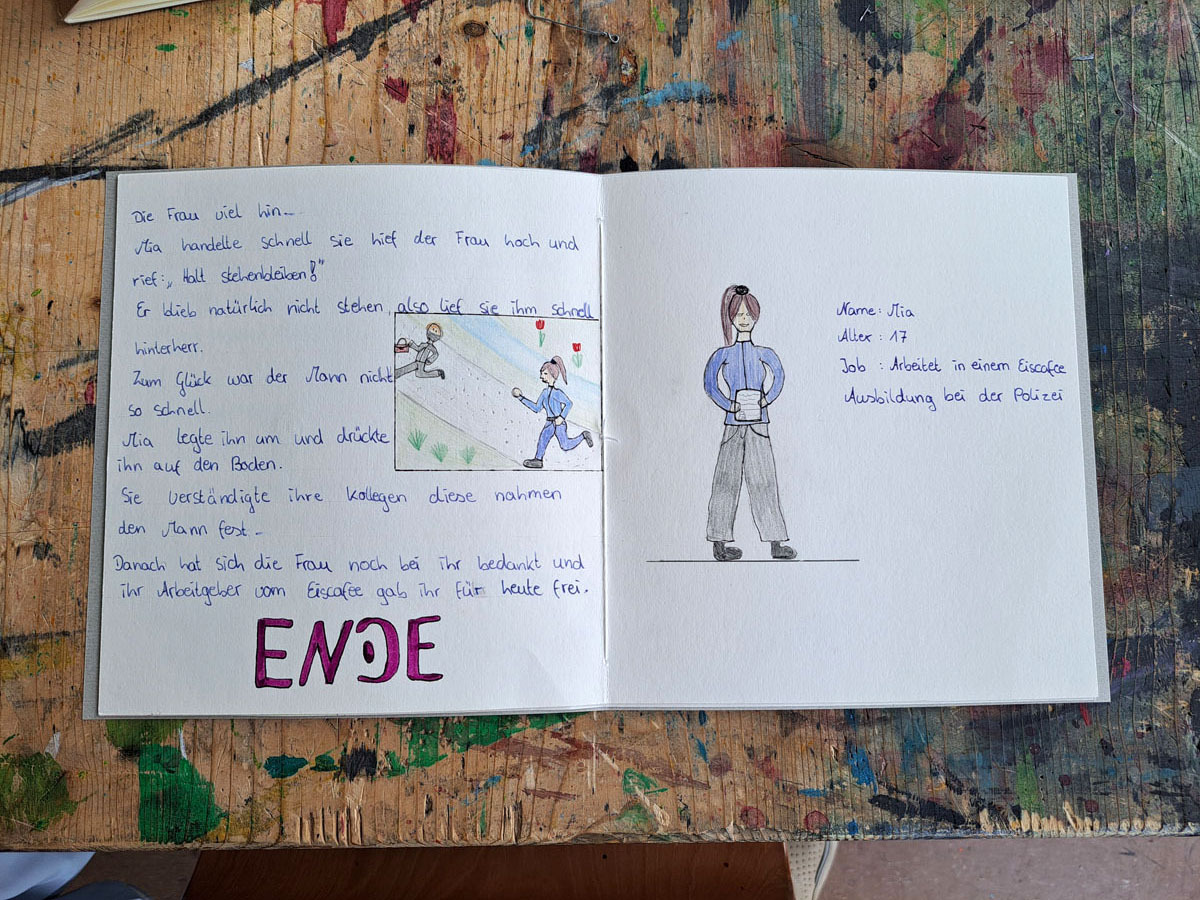 Die Frau viel hin...
Mia handelte schnell sie hief der Frau hoch und
rief: „Halt stehenbleiben!"
Er blieb natürlich nicht stehen, also lief sie ihm schnell
hinterherr.
Zum Glück war der Mann nicht
so schnell.
Mia legte ihn um und drückte
ihn auf den Boden.
Sie verständigte ihre Kollegen diese nahmen
den Mann fest..
Danach hat sich die Frau noch bei ihr bedankt und
ihr Arbeitgeber vom Eiscafee gab ihr für heute frei.
ENDE
Name: Mia
Alter: 17
Job : Arbeitet in einem Eiscafee
Ausbildung bei der Polizei